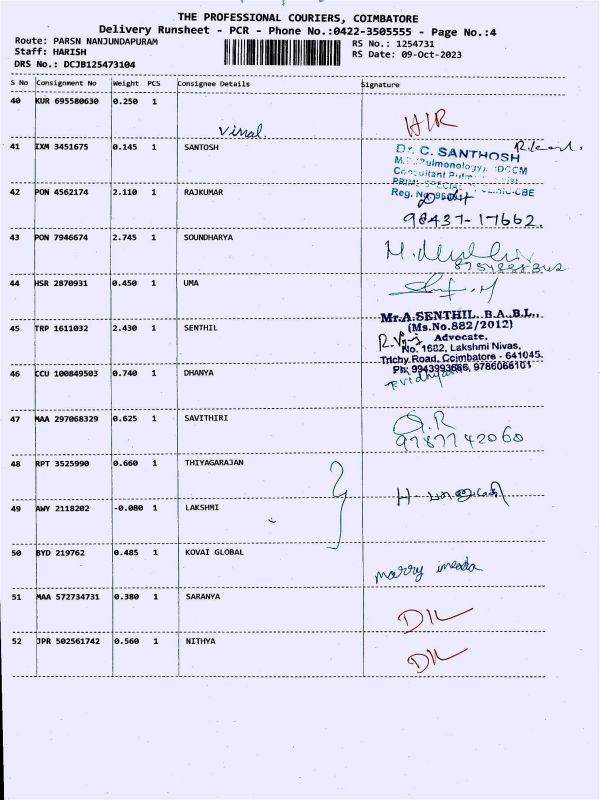 THE PROFESSIONAL COURIERS, COIMBATORE
Delivery Runsheet - PCR - Phone No.:0422-3505555 - Page No.:4
Route: PARSN NANJUNDAPURAM
RS No.: 1254731
Staff: HARISH
RS Date: 09-Oct-2023
DRS No.: DCJB125473104
S No Consignment No Weight PCS Consignee Details Signature
40 KUR 695580630 0.250 1
41 IXM 3451675 0.145 1 SANTOSH
Dr. C. SANTHOSH
42 PON 4562174 2.110 1 RAJKUMAR
98437-17662.
43 PON 7946674 2.745 1 SOUNDHARYA
44 HSR 2870931 0.450 1 UMA
Mr.A.SENTHIL. B.A.B.L.,
(Ms.No.882/2012)
45 TRP 1611032 2.430 1 SENTHIL
Advocate,
No. 1682, Lakshmi Nivas,
Trichy Road, Coimbatore - 641045.
Ph: 9943993686, 9786066101
46 CCU 100849503 0.740 1 DHANYA
47 MAA 297068329 0.625 1 SAVITHIRI
9787742060
48 RPT 3525990 0.660 1 THIYAGARAJAN
49 AWY 2118202 -0.080 1 LAKSHMI
50 BYD 219762 0.485 1 KOVAI GLOBAL
51 MAA 572734731 0.380 1 SARANYA
52 JPR 502561742 0.560 1 NITHYA